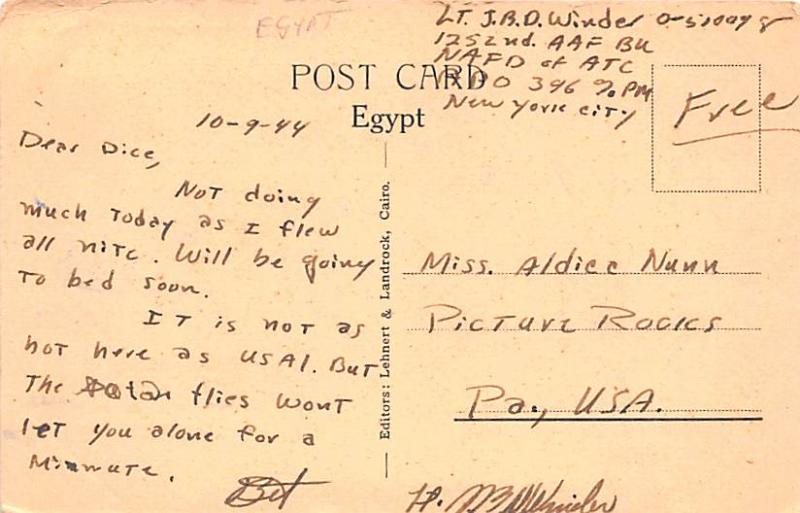 EGYPT
LT. J.B.D. Winder
1252nd. AAF BU
NAFD of ATC
APO 396 % PM
New York City
Free
POST CARD
Egypt
10-9-44
Dear Dice,
Not doing
much Today as I flew
all nite. Will be going
To bed soon.
IT is not as
hot here as USA!. But
The flies wont
let you alone for a
Minute.
Editors: Lehnert & Landrock, Cairo.
Miss. Aldice Nunn
Picture Rocks
Pa., USA.